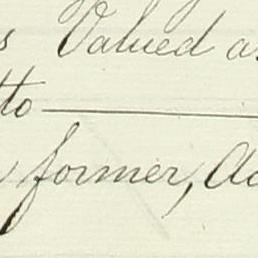 Valued as
tto
former, Ac